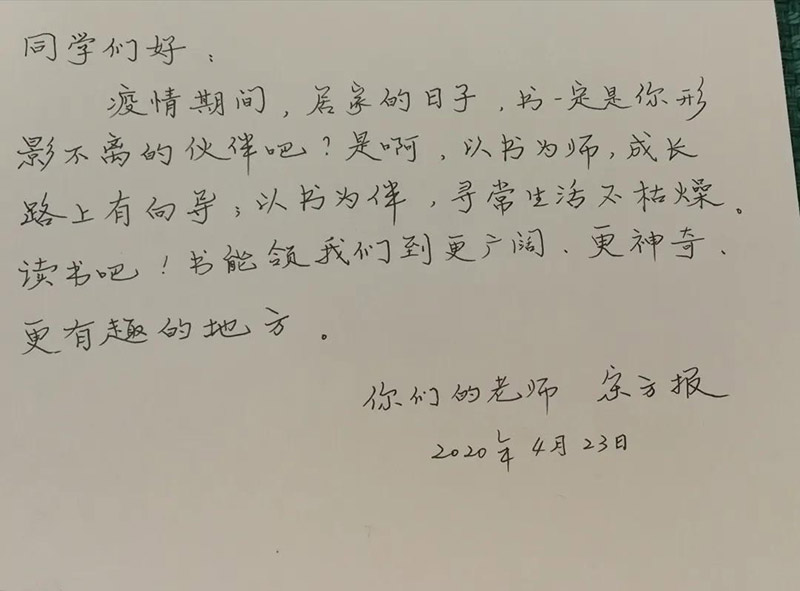 同学们好：
疫情期间，居家的日子，书一定是你形
影不离的伙伴吧？是啊，以书为师，成长
路上有向导；以书为伴，寻常生活不枯燥。
读书吧！书能领我们到更广阔、更神奇、
更有趣的地方。
你们的老师 宗方报
2020年4月23日